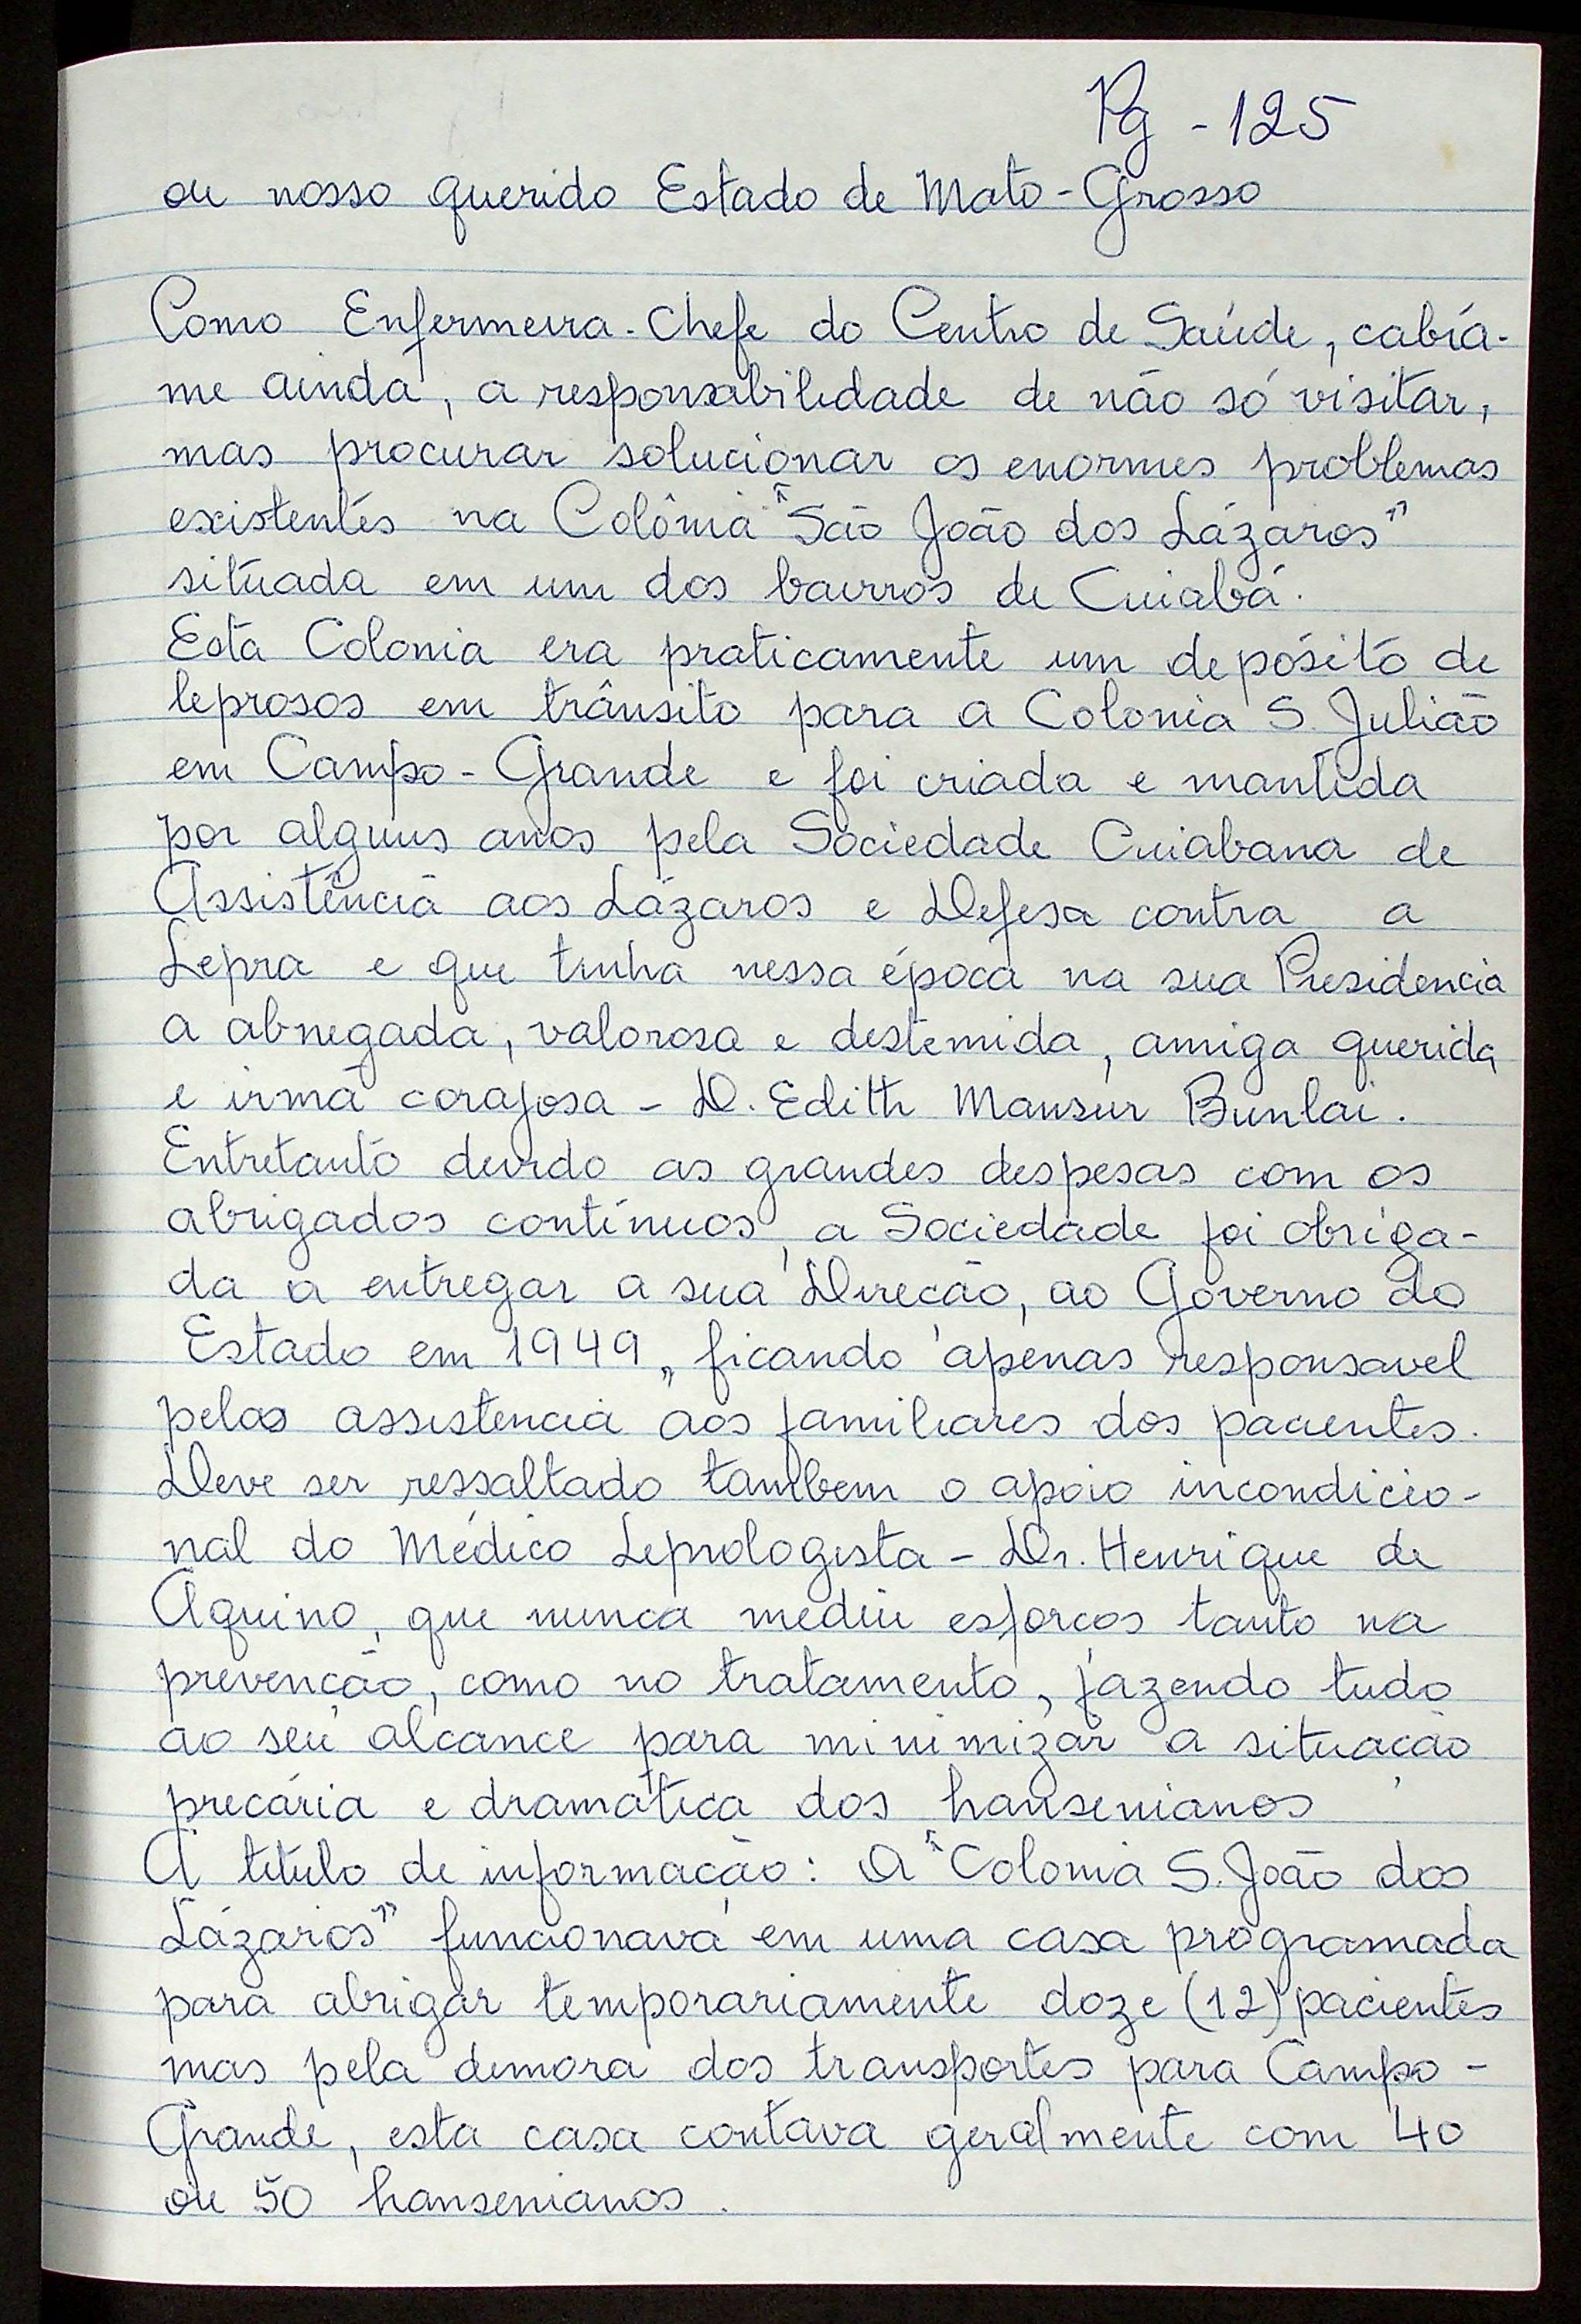 Pg - 125
ou nosso querido Estado de Mato-Grosso
Como Enfermeira-Chefe do Centro de Saúde, cabía-
me ainda, a responsabilidade de não só visitar,
mas procurar solucionar os enormes problemas
existentes na Colônia "São João dos Lázaros"
situada em um dos bairros de Cuiabá.
Esta Colonia era praticamente um depósito de
leprosos em trânsito para a Colonia S. Julião
em Campo-Grande e foi criada e mantida
por alguns anos pela Sociedade Cuiabana de
Assistência aos Lázaros e Defesa contra a
Lepra e que tinha nessa época na sua Presidencia
a abnegada, valorosa e destemida, amiga querida
e irmã corajosa - D. Edith Mansur Bunlai.
Entretanto devido as grandes despesas com os
abrigados contínuos, a Sociedade foi obriga-
da a entregar a sua Direção, ao Governo do
Estado em 1949, ficando apenas responsavel
pelas assistencia aos familiares dos pacientes.
Deve ser ressaltado tambem o apoio incondicio-
nal do Médico Leprologista - Dr. Henrique de
Aquino, que nunca mediu esforços tanto na
prevenção, como no tratamento, fazendo tudo
ao seu alcance para minimizar a situação
precária e dramática dos hansenianos
A título de informação: A "Colonia S. João dos
Lázaros" funcionava em uma casa programada
para abrigar temporariamente doze (12) pacientes
mas pela demora dos transportes para Campo-
Grande, esta casa contava geralmente com 40
ou 50 hansenianos.